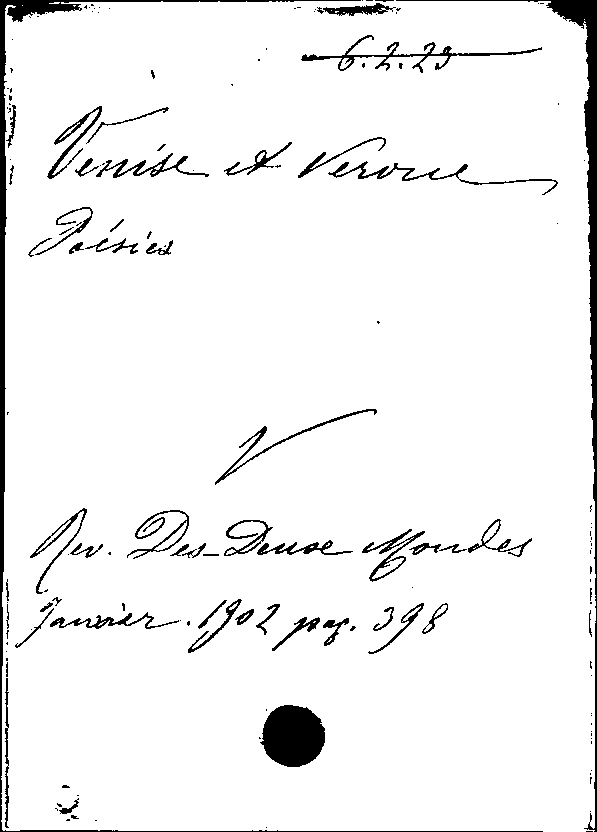 6.2.23
Venise et Verone
Poésies
V
Rev. Des Deux Mondes
Janvier. 1902 pag. 398